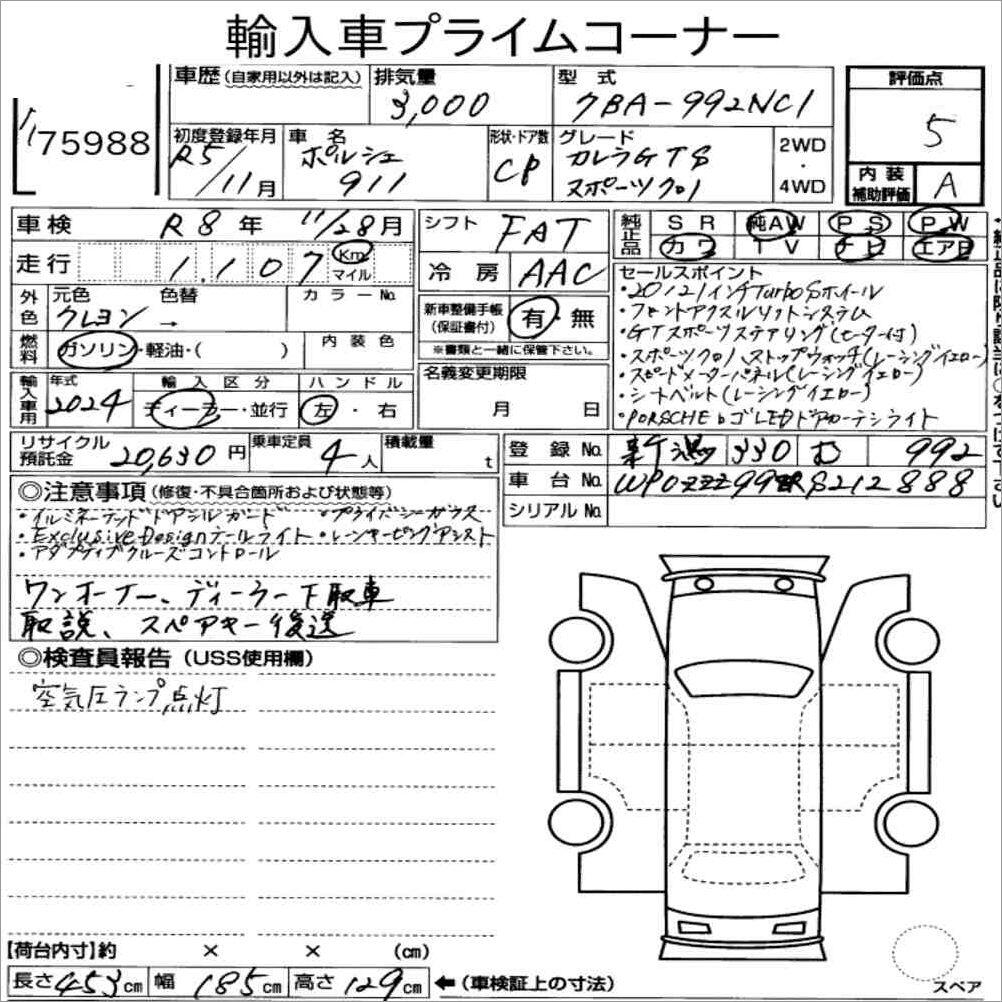 輸入車プライムコーナー
75988
車歴(自家用以外は記入)
排気量
3,000
型 式
7BA-992NC1
評価点
5
初度登録年月
R5/11月
車 名
ポルシェ
911
形状・ドア数
CP
グレード
カレラGTS
スポーツクロノ
2WD
・
4WD
内装
補助評価
A
車検
R8年 11/28月
走行
1.107
Km
マイル
シフト
FAT
冷房
AAC
純正品
SR 純AW P.S P.W
カワ TV ナビ エアB
外色
元色
クレヨン
色替
→
カラーNo.
燃料
ガソリン・軽油・( )
内装色
新車整備手帳
(保証書付)
有・無
※書類と一緒に保管下さい。
セールスポイント
・20/21インチTurboSホイール
・フロントアクスルリフトシステム
・GTスポーツステアリング(ヒーター付)
・スポーツクロノストップウォッチ(レーシングイエロー)
・スピードメーターパネル(レーシングイエロー)
・シートベルト(レーシングイエロー)
・PORSCHEロゴLEDドアカーテシライト
輸入車用
年式
2024
輸入区分
ディーラー・並行
ハンドル
左・右
名義変更期限
月 日
リサイクル
預託金
20,630円
乗車定員
4人
積載量
t
登録No.
新潟 330 む 992
車台No.
WP0ZZZ99ZRS212888
シリアルNo.
◎注意事項(修復・不具合箇所および状態等)
・イルミネーテッドドアシルガード ・プライバシーガラス
・Exclusive Designテールライト・レーンキーピングアシスト
・アダプティブクルーズコントロール
ワンオーナー、ディーラー下取車
取説、スペアキー後送
◎検査員報告(USS使用欄)
空気圧ランプ点灯
【荷台内寸】約 × × (cm)
長さ453cm 幅185cm 高さ129cm ←(車検証上の寸法)
スペア